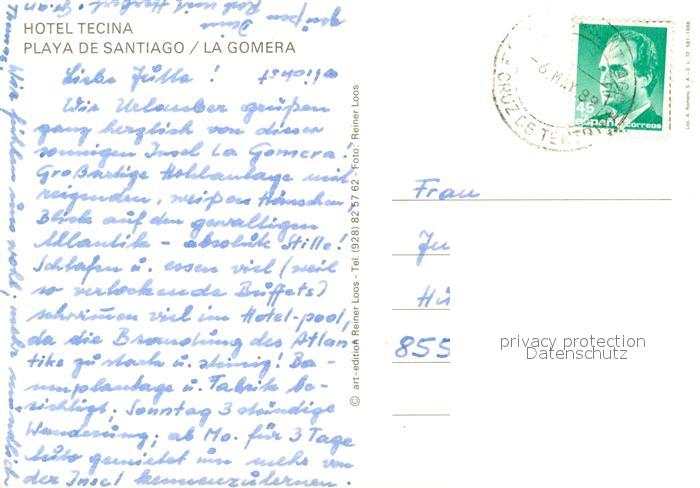 HOTEL TECINA
PLAYA DE SANTIAGO / LA GOMERA
Liebe Jutta!
Wir Urlauber grüßen
ganz herzlich von dieser
sonnigen Insel La Gomera!
Großartige Hotelanlage mit
reizenden, weißen Häuschen,
Blick auf den gewaltigen
Atlantik - absolute Stille!
Schlafen u. essen viel (weil
so verlockende Büffets)
schwimmen viel im Hotel-pool,
da die Brandung des Atlan-
tiks zu stark u. steinig! Ba-
nanplantage u. Fabrik be-
sichtigt, Sonntag 3 stündige
Wanderung, ab Mo. für 3 Tage
Auto gemietet um mehr von
der Insel kennenzulernen.
Wir fühlen uns wohl; mehr mündlich
© art-edition Reiner Loos - Tel. (928) 82 57 62 - Foto: Reiner Loos
-6. MAY 89
LA CRUZ DE TENERIFE
45
españa correos
Lito. A. Romero, S. A.
Frau
Ju
855
privacy protection
Datenschutz